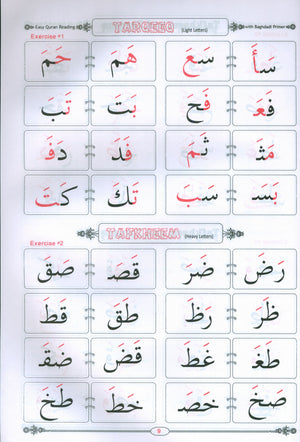 Easy Quran Reading TARQEEQ (Light Letters) with Baghdadi Primer
Exercise #1
سَأَ سَعَ هَمَ حَمَ
فَعَ فَحَ بَتَ تَبَ
مَثَ ثَمَ فَدَ دَفَ
بَسَ سَبَ تَكَ كَتَ
TAFKHEEM (Heavy Letters)
Exercise #2
رَضَ ضَرَ قَصَ صَقَ
ظَرَ رَظَ طَقَ قَطَ
طَغَ غَطَ قَضَ ضَقَ
صَخَ خَصَ خَطَ طَخَ
9